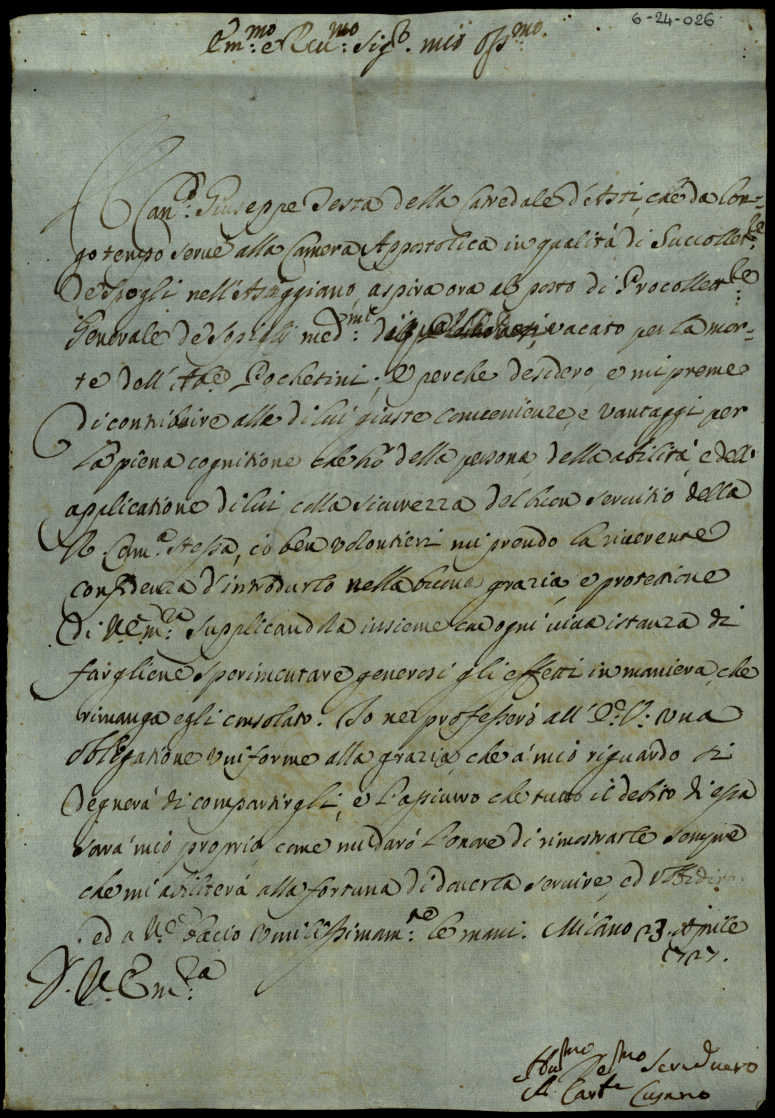 6-24-026
Em:mo e Reu:mo Sig:r mio Oss:mo
Il Can:co Giuseppe Testa della Catedale d'Asti, che da lon-
go tempo serue alla Camera Apostolica in qualità di Succollet:re
de Spogli nell'Asteggiano, aspira ora al posto di Procollet:re
Generale de Spogli med:mi vacato per la mor-
te dell'Ab:e Pochetini; e perche desidero, e mi preme
di contribuire alle di lui giuste conuenienze, e vantaggi per
la piena cognitione che hò della persona, della abilità, e dell'
applicatione di lui colla sicurezza del bien seruitio della
R. Cam:a stessa, io ben volontieri mi prendo la riuerente
confidenza d'introdurlo nella buona grazia, e protetione
di V. Em:za supplicandola insieme con ogni viua istanza di
fargliene sperimentare generosi gli effetti in maniera, che
rimanga egli consolato. Io ne professerò all'E. V. vna
obligatione vniforme alla grazia, che à mio riguardo si
degnerà di compartirgli, e l'assicuro che tutto il debito di essa
sarà mio proprio, come mi darò l'onore di rimostrarle sempre
che mi abiliterà alla fortuna di douerla seruire, ed vbbidire
ed a V. E. bacio vmilissimam:te le mani. Milano 23. Aprile
1727.
D. V. Em:za
Hu:mo De:mo Seruo vero
A. Card:le Cusano